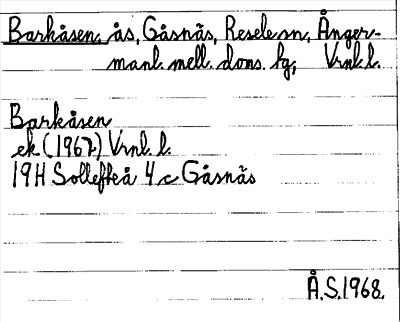 Barkåsen, ås, Gåsnäs, Resele sn, Ånger-
manl. mell. doms. hg, Vrnl. l.
Barkåsen
ek (1967) Vrnl. l.
19H Sollefteå 4 c Gåsnäs
Å.S. 1968.